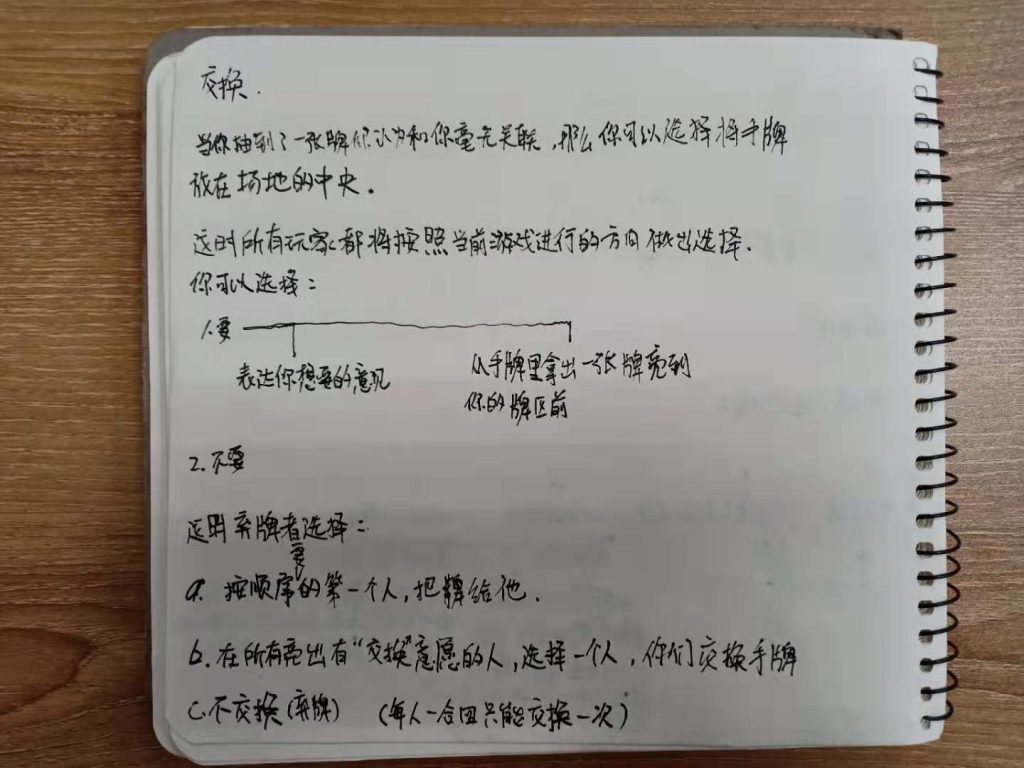 交换.
当你抽到了一张牌你认为和你毫无关联,那么你可以选择将手牌
放在场地的中央.
这时所有玩家都将按照当前游戏进行的方向做出选择.
你可以选择:
1.要
表达你想要的意见
从手牌里拿出一张牌亮到
你的牌区前
2.不要
这时弃牌者选择:
a. 按顺序要的第一个人,把牌给他.
b.在所有亮出有"交换"意愿的人,选择一个人,你们交换手牌
c.不交换(弃牌) (每人一合回只能交换一次)